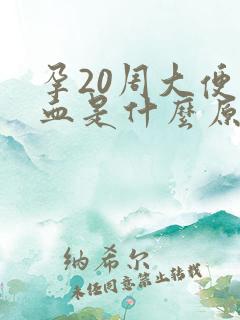 孕20周大便
血是什麽原
纳希尔
未经同意禁止转载